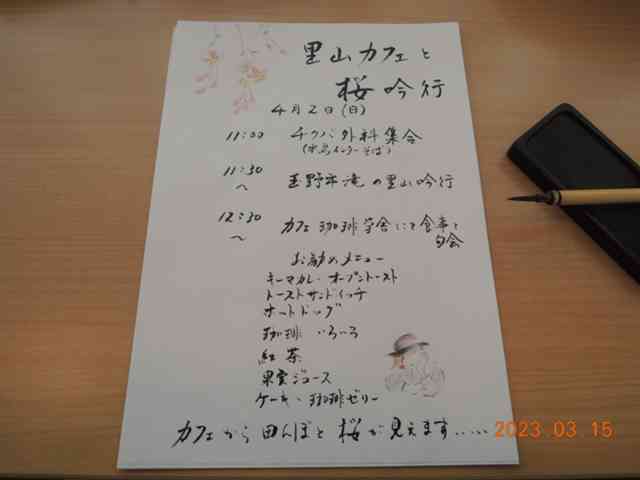 里山カフェと
桜吟行
4月2日(日)
11:00 チクバ外科集合
(水島インターそば)
11:30
〜 玉野市滝の里山吟行
12:30
〜 カフェ珈琲学舎にて食事と
句会
お勧めメニュー
キーマカレーオープントースト
トーストサンドイッチ
ホットドッグ
珈琲 いろいろ
紅茶
果実ジュース
ケーキ・珈琲ゼリー
カフェから田んぼと桜が見えます.....
2023.03.15